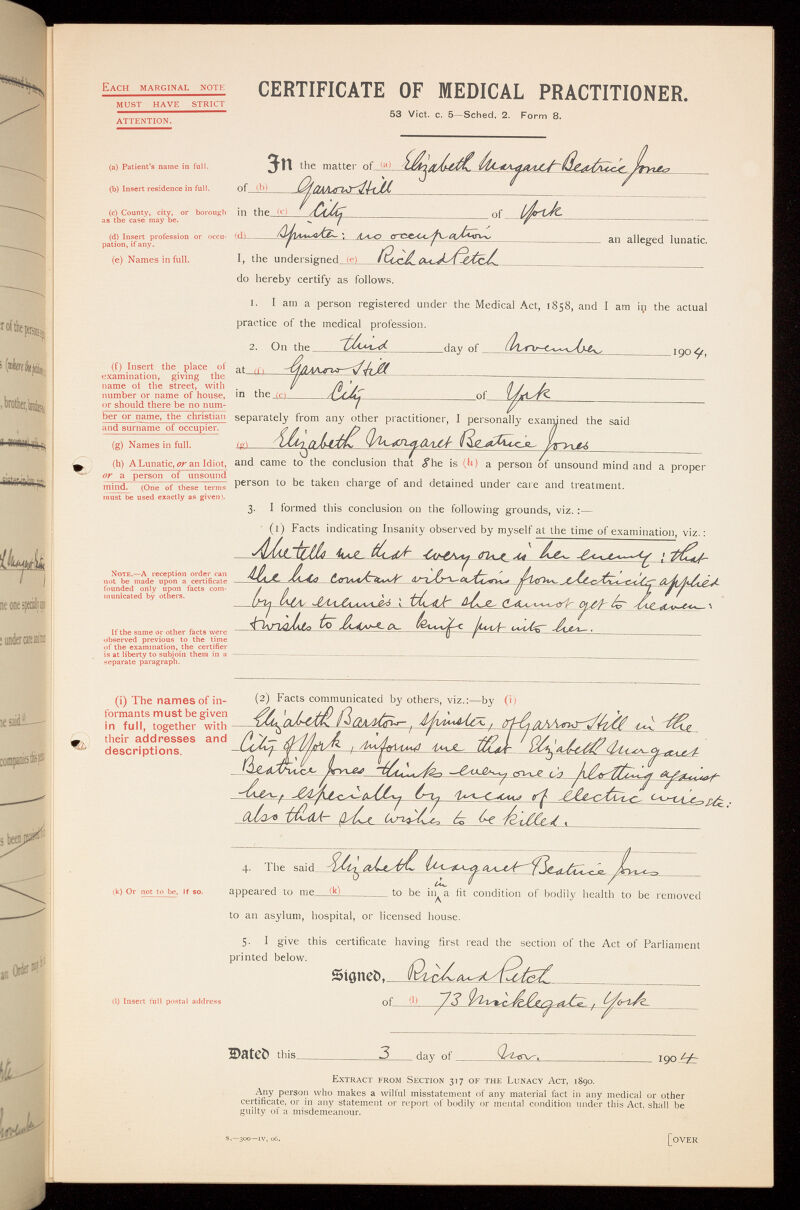 EACH MARGINAL NOTE
MUST HAVE STRICT
ATTENTION.
CERTIFICATE OF MEDICAL PRACTITIONER.
53 Vict. c. 5—Sched. 2. Form 8.
(a) Patient's name in full.
In the matter of (a) Elizabeth Margaret Beatrice Jones
(b) Insert residence in full.
of (b) Garrow Hill
(c) County, city, or borough as the case may be.
in the (c) City of York
(d) Insert profession or occupation, if any.
(d) Spinster: no occupation an alleged lunatic.
(e) Names in full.
I, the undersigned (e) Richard Petch
do hereby certify as follows.
1. I am a person registered under the Medical Act, 1858, and I am in the actual
practice of the medical profession.
2. On the third day of November 1904,
(f) Insert the place of
examination, giving the
name of the street, with
number or name of house,
or should there be no num-
ber or name, the christian
and surname of occupier.
at (f) Garrow Hill
in the (c) City of York
separately from any other practitioner, I personally examined the said
(g) Names in full.
(g) Elizabeth Margaret Beatrice Jones
(h) A Lunatic, or an Idiot,
or a person of unsound
mind. (One of these terms
must be used exactly as given).
and came to the conclusion that She is (h) a person of unsound mind and a proper
person to be taken charge of and detained under care and treatment.
3. I formed this conclusion on the following grounds, viz. :—
(1) Facts indicating Insanity observed by myself at the time of examination, viz.:
She tells me that every one is her enemy: that
she has constant vibrations from electricity applied
by her enemies: that she cannot get to heaven:
& wishes to have a knife put into her.
NOTE.—A reception order can
not be made upon a certificate
founded only upon facts com-
municated by others.
If the same or other facts were
observed previous to the time
of the examination, the certifier
is at liberty to subjoin them in a
separate paragraph.
(i) The names of in-
formants must be given
in full, together with
their addresses and
descriptions.
(2) Facts communicated by others, viz.:—by (i)
Elizabeth Barstow, spinster, of Garrow Hill in the
City of York, informs me that Elizabeth Margaret
Beatrice Jones thinks every one is plotting against
her, especially by means of electric wires etc:
also that she wishes to be killed.
4. The said Elizabeth Margaret Beatrice Jones
(k) Or not to be, if so.
in
appeared to me (k) to be in a fit condition of bodily health to be removed
to an asylum, hospital, or licensed house.
5. I give this certificate having first read the section of the Act of Parliament
printed below.
Signed, Richard Petch
(l) Insert full postal address
of (l) 73 Micklegate, York
Dated this 3 day of Nov. 1904
EXTRACT FROM SECTION 317 OF THE LUNACY ACT, 1890.
Any person who makes a wilful misstatement of any material fact in any medical or other
certificate, or in any statement or report of bodily or mental condition under this Act, shall be
guilty of a misdemeanour.
S.—300—IV, 06.
[OVER